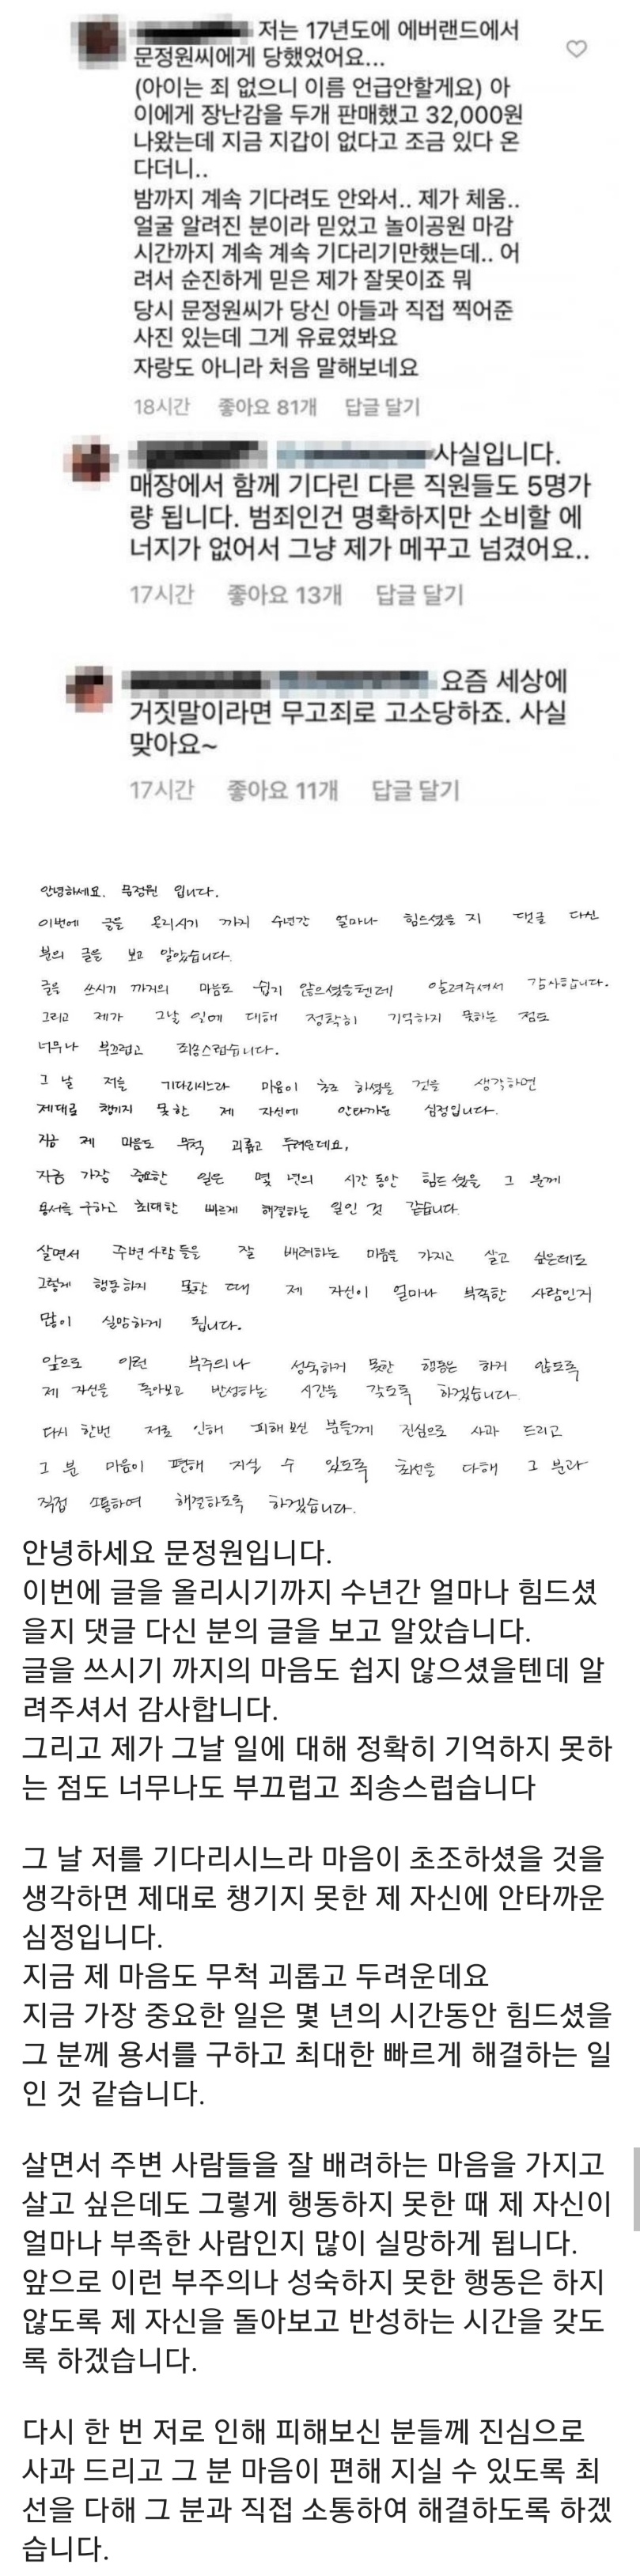 저는 17년도에 에버랜드에서
문정원씨에게 당했었어요...
(아이는 죄 없으니 이름 언급안할게요) 아
이에게 장난감을 두개 판매했고 32,000원
나왔는데 지금 지갑이 없다고 조금 있다 온
다더니..
밤까지 계속 기다려도 안와서.. 제가 채움..
얼굴 알려진 분이라 믿었고 놀이공원 마감
시간까지 계속 계속 기다리기만했는데.. 어
려서 순진하게 믿은 제가 잘못이죠 뭐
당시 문정원씨가 당신 아들과 직접 찍어준
사진 있는데 그게 유료였봐요
자랑도 아니라 처음 말해보네요
18시간 좋아요 81개 답글 달기
사실입니다.
매장에서 함께 기다린 다른 직원들도 5명가
량 됩니다. 범죄인건 명확하지만 소비할 에
너지가 없어서 그냥 제가 메꾸고 넘겼어요..
17시간 좋아요 13개 답글 달기
요즘 세상에
거짓말이라면 무고죄로 고소당하죠. 사실
맞아요~
17시간 좋아요 11개 답글 달기
안녕하세요. 문정원 입니다.
이번에 글을 올리시기 까지 수년간 얼마나 힘드셨을 지 댓글 다신
분의 글을 보고 알았습니다.
글을 쓰시기 까지의 마음도 쉽지 않으셨을텐데 알려주셔서 감사합니다.
그리고 제가 그날 일에 대해 정확히 기억하지 못하는 점도
너무나 부끄럽고 죄송스럽습니다.
그 날 저를 기다리시느라 마음이 초조 하셨을 것을 생각하면
제대로 챙기지 못한 제 자신에 안타까운 심정입니다.
지금 제 마음도 무척 괴롭고 두려운데요,
지금 가장 중요한 일은 몇 년의 시간 동안 힘드셨을 그 분께
용서를 구하고 최대한 빠르게 해결하는 일인 것 같습니다.
살면서 주변 사람들을 잘 배려하는 마음을 가지고 살고 싶은데도
그렇게 행동하지 못한 때 제 자신이 얼마나 부족한 사람인지
많이 실망하게 됩니다.
앞으로 이런 부주의나 성숙하지 못한 행동은 하지 않도록
제 자신을 돌아보고 반성하는 시간을 갖도록 하겠습니다.
다시 한번 저로 인해 피해보신 분들께 진심으로 사과 드리고
그 분 마음이 편해 지실 수 있도록 최선을 다해 그 분과
직접 소통하여 해결하도록 하겠습니다.
안녕하세요 문정원입니다.
이번에 글을 올리시기까지 수년간 얼마나 힘드셨
을지 댓글 다신 분의 글을 보고 알았습니다.
글을 쓰시기 까지의 마음도 쉽지 않으셨을텐데 알
려주셔서 감사합니다.
그리고 제가 그날 일에 대해 정확히 기억하지 못하
는 점도 너무나도 부끄럽고 죄송스럽습니다
그 날 저를 기다리시느라 마음이 초조하셨을 것을
생각하면 제대로 챙기지 못한 제 자신에 안타까운
심정입니다.
지금 제 마음도 무척 괴롭고 두려운데요
지금 가장 중요한 일은 몇 년의 시간동안 힘드셨을
그 분께 용서를 구하고 최대한 빠르게 해결하는 일
인 것 같습니다.
살면서 주변 사람들을 잘 배려하는 마음을 가지고
살고 싶은데도 그렇게 행동하지 못한 때 제 자신이
얼마나 부족한 사람인지 많이 실망하게 됩니다.
앞으로 이런 부주의나 성숙하지 못한 행동은 하지
않도록 제 자신을 돌아보고 반성하는 시간을 갖도
록 하겠습니다.
다시 한 번 저로 인해 피해보신 분들께 진심으로
사과 드리고 그 분 마음이 편해 지실 수 있도록 최
선을 다해 그 분과 직접 소통하여 해결하도록 하겠
습니다.